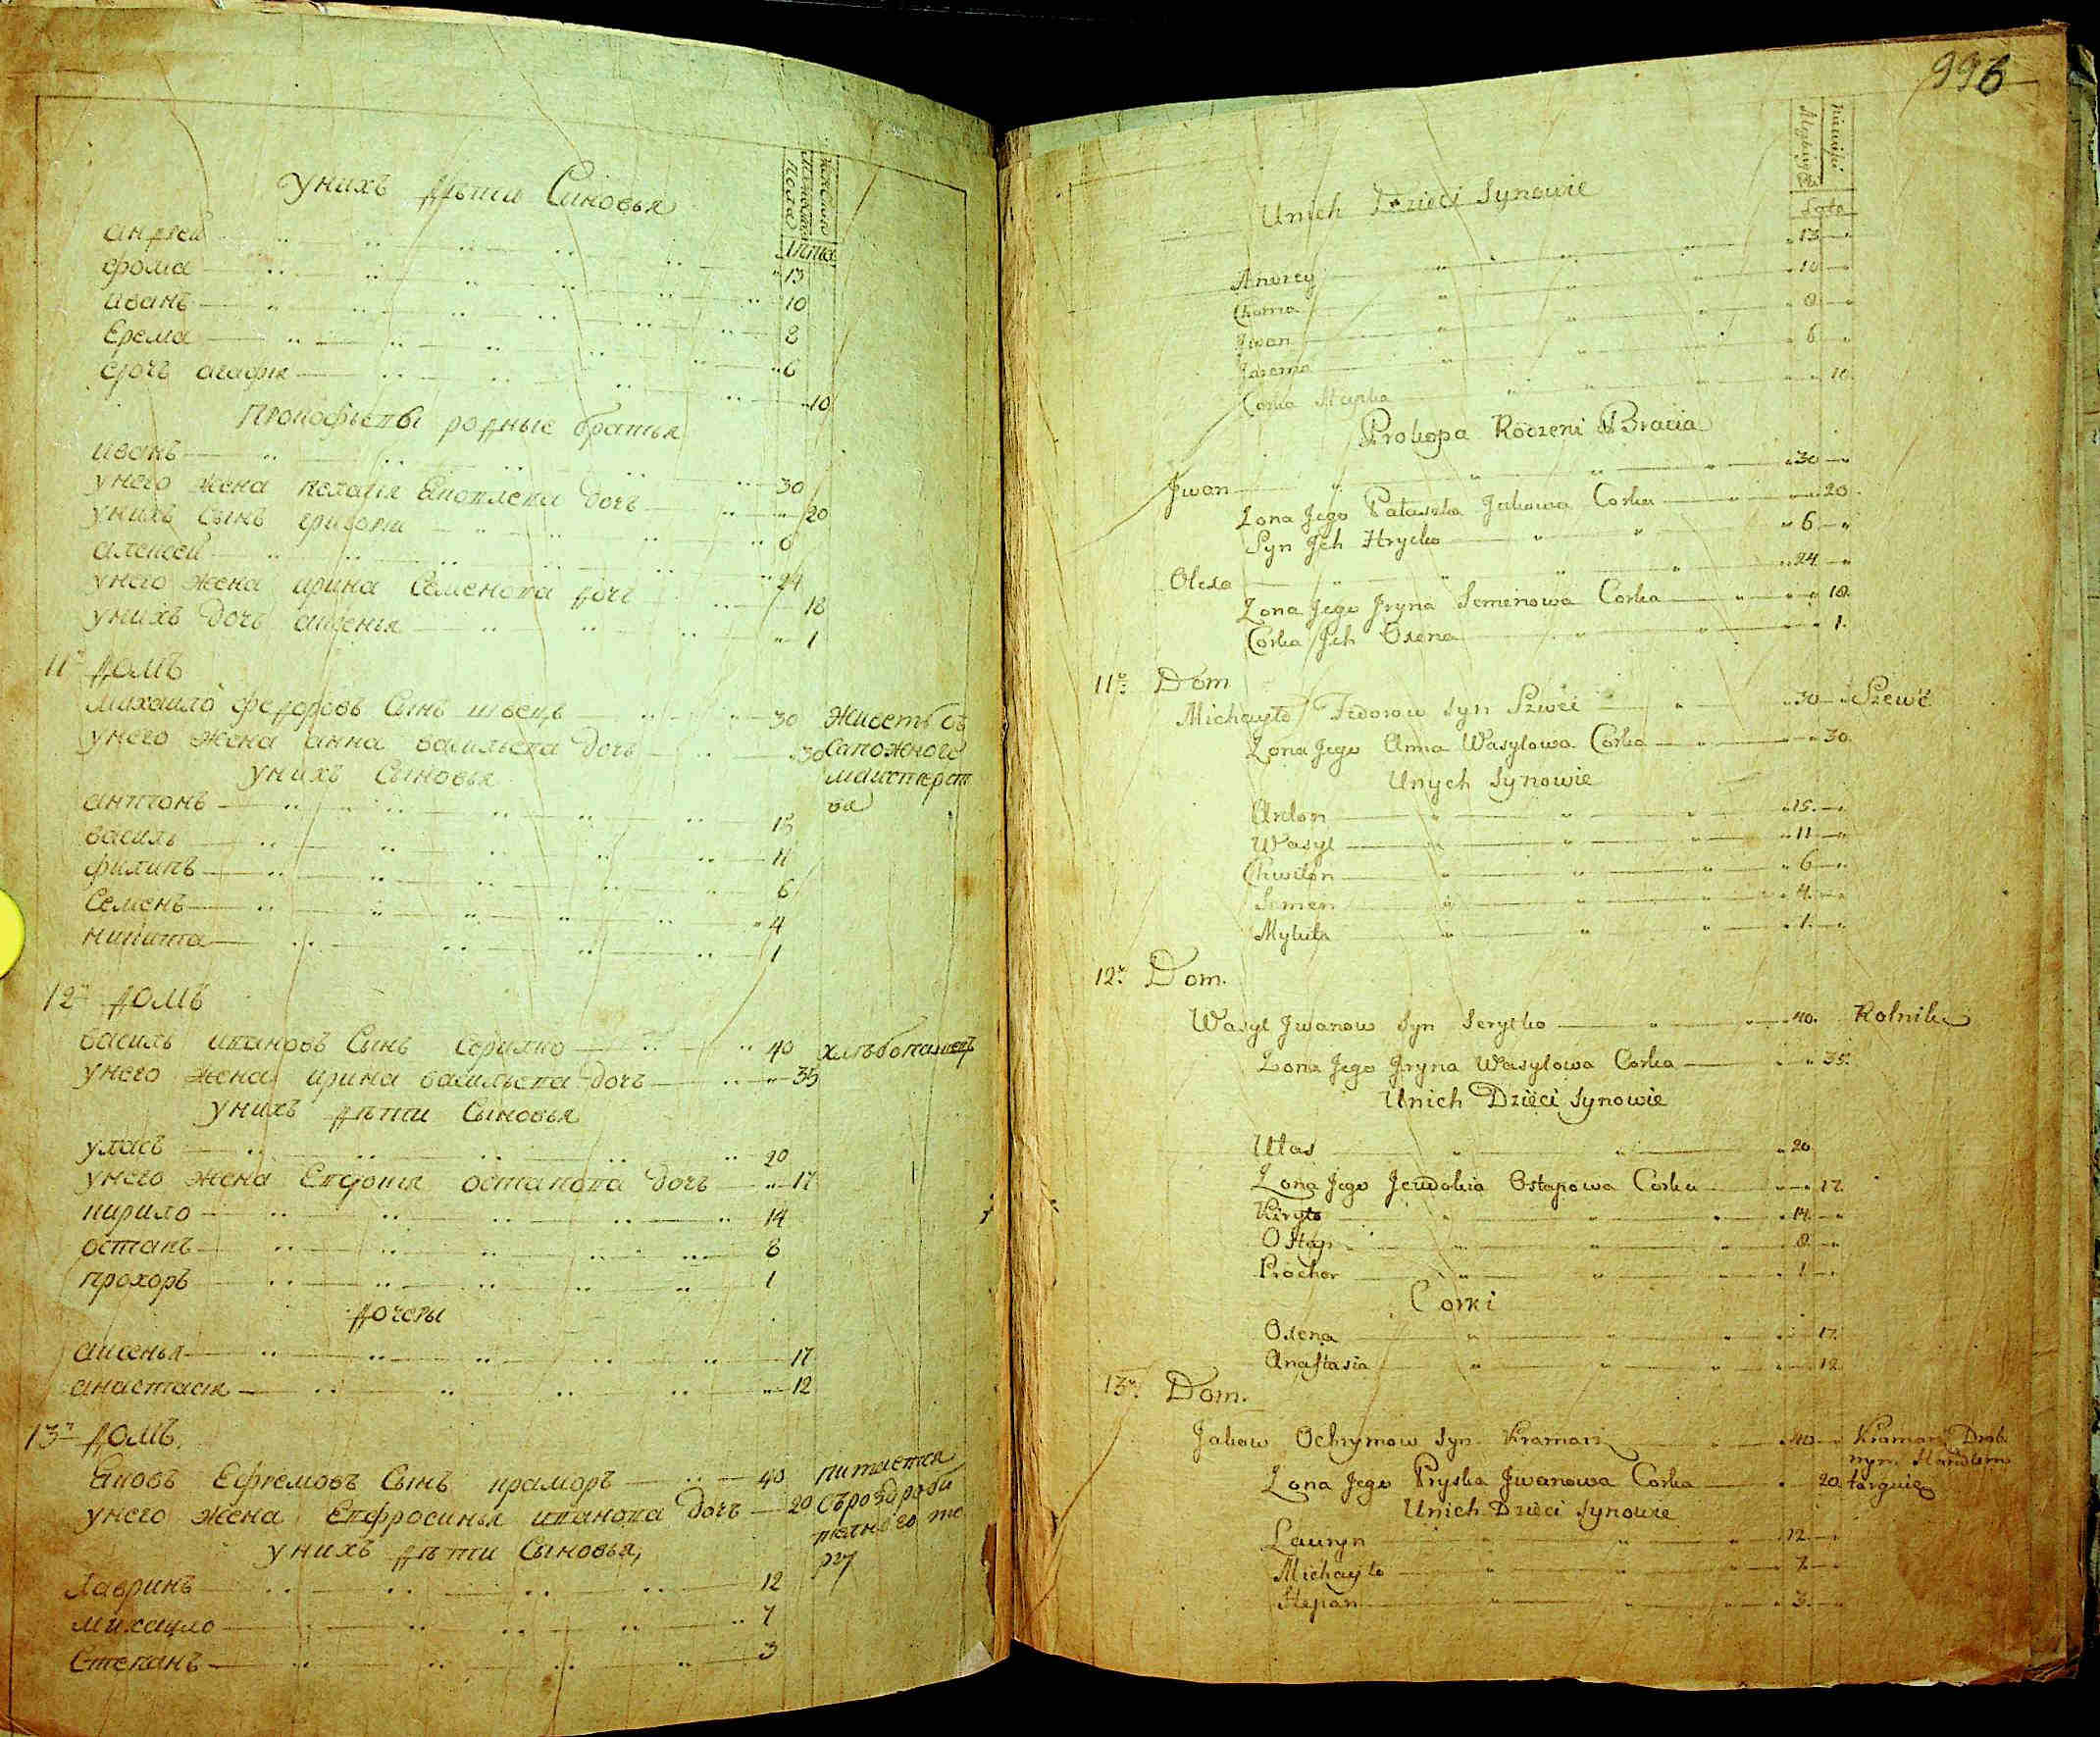 унихъ дѣти Синовья
женского
мужеска
пола
лѣта
андрей 13
фома 10
иванъ 8
Ерема 6
дочь агафия 10
Прокофьевы родные братья
иванъ 30
унего жена пелагея Яковлева дочь 20
унихъ Сынъ григори 6
алексей 24
унего жена ирина Семенова дочь 18
унихъ дочь аксенья 1
11й домъ
михаило федоровъ Сынъ швець 30 живетъ съ
унего жена анна васильева дочь 30 сапожного
унихъ Сыновья майстерст
антонъ 15 ва
василь 11
филипъ 6
Семенъ 4
никита 1
12й домъ
василь ивановъ Сынъ Серилко 40 хлѣбопашецъ
унего жена ирина васильева дочь 35
унихъ дѣти Сыновья
уласъ 20
унего жена Евдокия остапова дочь 17
кирило 14
остапъ 8
прохоръ 1
дочеры
аксенья 17
анастасия 12
13й домъ
Яковъ Ефремовъ Сынъ крамарь 40 питается
унего жена Евфросинья иванова дочь 20 съ роздроби
унихъ дѣти Сыновья, телного то
лавринъ 12 ргу
михайло 7
Степанъ 3
996
Unich Dzieci Synowie
Lata
Andrey 13
Choma 10
Jwan 8
Jarema 6
Corka Hapka 10
Prokopa Rodzeni Bracia
Jwan 30
Zona Jego Palaszka Jakowa Corka 20
Syn Jch Hrycko 6
Olexa 24
Zona Jego Jryna Semenowa Corka 18
Corka Jch Oxena 1
11. Dom
Michayło Fedorow Syn Szweć 30 Szewc
Zona Jego Anna Wasylowa Corka 30
Unych Synowie
Anton 15
Wasyl 11
Chwilon 6
Semen 4
Mykita 1
12. Dom.
Wasyl Jwanow Syn Seryłko 40 Rolnik
Zona Jego Jryna Wasylowa Corka 35
Unich Dzieci Synowie
Ułas 20
Zona Jego Jewdokia Ostapowa Corka 17
Kiryło 14
Ostap 8
Prochor 1
Corki
Oxena 17
Anastasia 12
13. Dom.
Jakow Ochrymow Syn Kramarz 40 Kramarz Drob
nym Handlem
Zona Jego Pryska Jwanowa Corka 20 targuie
Unich Dzieci Synowie
Lauryn 12
Michayło 7
Stepan 3